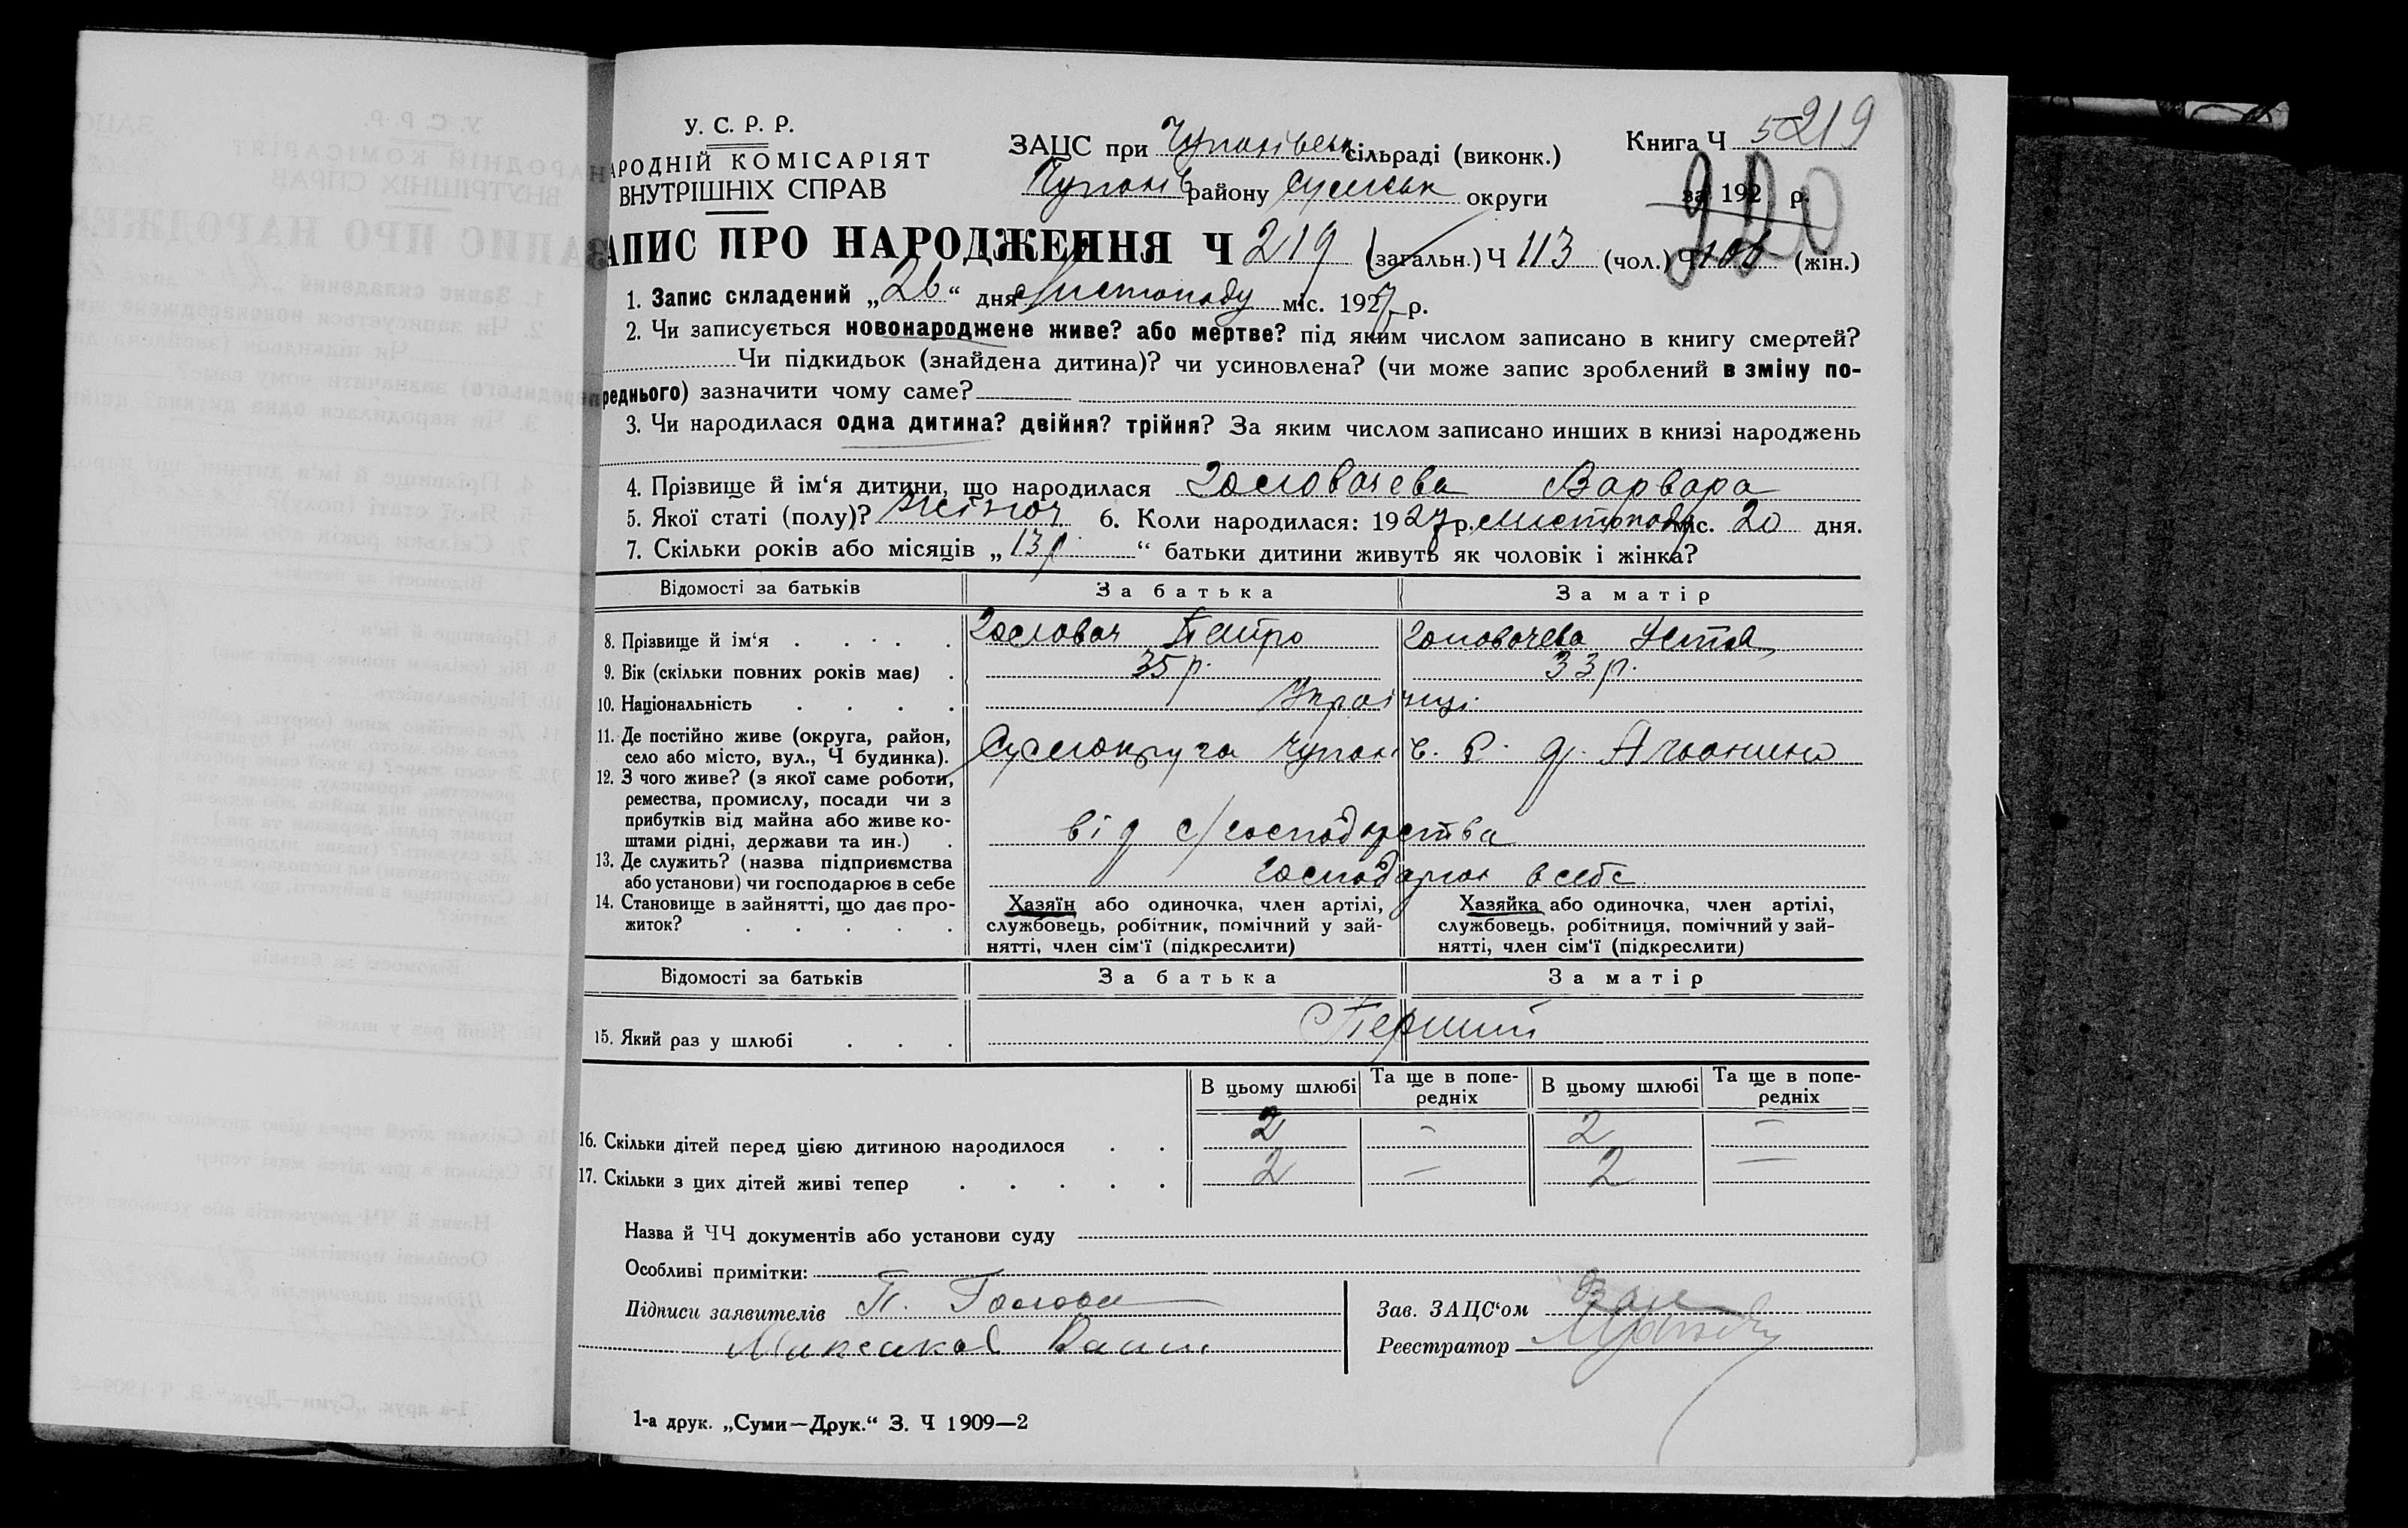 219
У. С. Р. Р.
НАРОДНІЙ КОМІСАРІЯТ
ВНУТРІШНІХ СПРАВ
ЗАЦС при сільраді (виконк.)
району Сумськ округи
Книга Ч 5
за 192 р.
220
ЗАПИС ПРО НАРОДЖЕННЯ Ч 219 (загальн.) Ч 113 (чол.) Ч 106 (жін.)
1. Запис складений „26“ дня Листопаду міс. 1927 р.
2. Чи записується новонароджене живе? або мертве? під яким числом записано в книгу смертей?
Чи підкидьок (знайдена дитина)? чи усиновлена? (чи може запис зроблений в зміну по-
переднього) зазначити чому саме?
3. Чи народилася одна дитина? двійня? трійня? За яким числом записано инших в книзі народжень
4. Прізвище й ім‘я дитини, що народилася Головачева Варвара
5. Якої статі (полу)? жіноч 6. Коли народилася: 1927 р. листопаду міс. 20 дня.
7. Скільки років або місяців „13 р.“ батьки дитини живуть як чоловік і жінка?
Відомості за батьків За батька За матір
8. Прізвище й ім‘я . . . . Головач Петро Головачева Устя
9. Вік (скільки повних років має) . 35 р. 33 р.
10. Національність . . . . Українці
11. Де постійно живе (округа, район,
село або місто, вул., Ч будинка). Сумокруга Чупах. Р.
12. З чого живе? (з якої саме роботи,
ремества, промислу, посади чи з
прибутків від майна або живе ко-
штами рідні, держави та ин.) . від с/господарства
13. Де служить? (назва підприємства
або установи) чи господарює в себе господарює в себе
14. Становище в зайнятті, що дає про-
житок? . . . . .
Хазяїн або одиночка, член артілі,
службовець, робітник, помічний у зай-
нятті, член сім‘ї (підкреслити)
Хазяйка або одиночка, член артілі,
службовець, робітниця, помічний у зай-
нятті, член сім‘ї (підкреслити)
Відомості за батьків За батька За матір
15. Який раз у шлюбі . . . Перший
В цьому шлюбі Та ще в попе-редніх В цьому шлюбі Та ще в попе-редніх
16. Скільки дітей перед цією дитиною народилося . . 2 — 2 —
17. Скільки з цих дітей живі тепер . . . . . 2 — 2 —
Назва й ЧЧ документів або установи суду
Особливі примітки:
Підписи заявителів П. Голова
Зав. ЗАЦС‘ом
Реєстратор
1-а друк. „Суми—Друк.“ З. Ч 1909—2